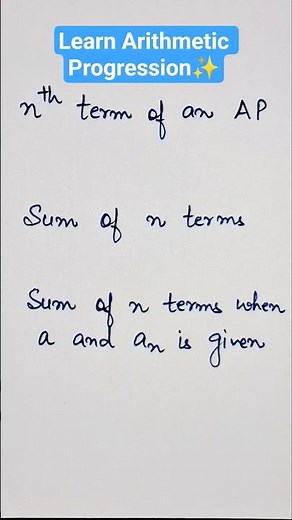 Learn Arithmetic
Progression✨
nth term of an AP
Sum of n terms
Sum of n terms when
a and an is given